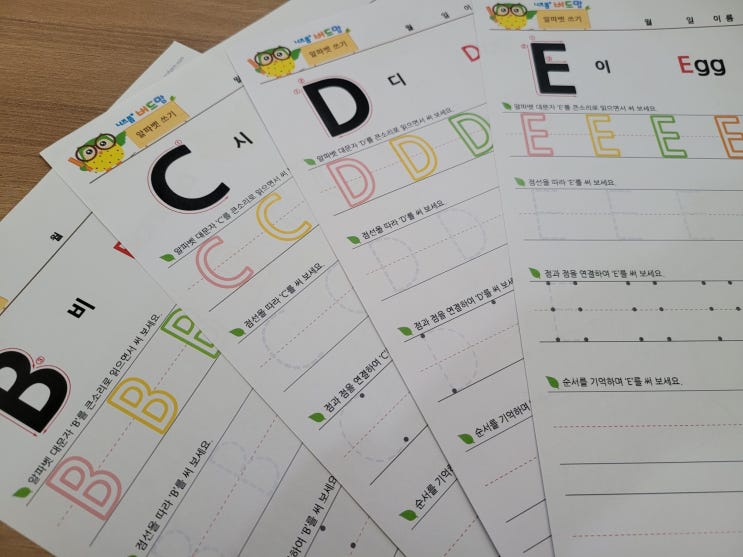 월
비
B
알파벳 대문자 'B'를 큰소리로 읽으면서 써 보세요.
B B B
점선을 따라 'B'를 써 보세요.
B B
'B'를 써
버드맘
알파벳 쓰기
C
시
알파벳 대문자 'C'를 큰소리로 읽으면서 써
C C
점선을 따라 'C'를 써 보세요.
점과 점을 연결하여 'C'
버드맘
알파벳 쓰기
월 일 이
D
디
D
알파벳 대문자 'D'를 큰소리로 읽으면서 써 보세요.
D D D
점선을 따라 'D'를 써 보세요.
D D
점과 점을 연결하여 'D'를 써 보
D
순서를 기억하며
버드맘
알파벳 쓰기
월 일 이름
E
이
Egg
알파벳 대문자 'E'를 큰소리로 읽으면서 써 보세요.
E E E E
점선을 따라 'E'를 써 보세요.
E E E
점과 점을 연결하여 'E'를 써 보세요.
순서를 기억하며 'E'를 써 보세요.